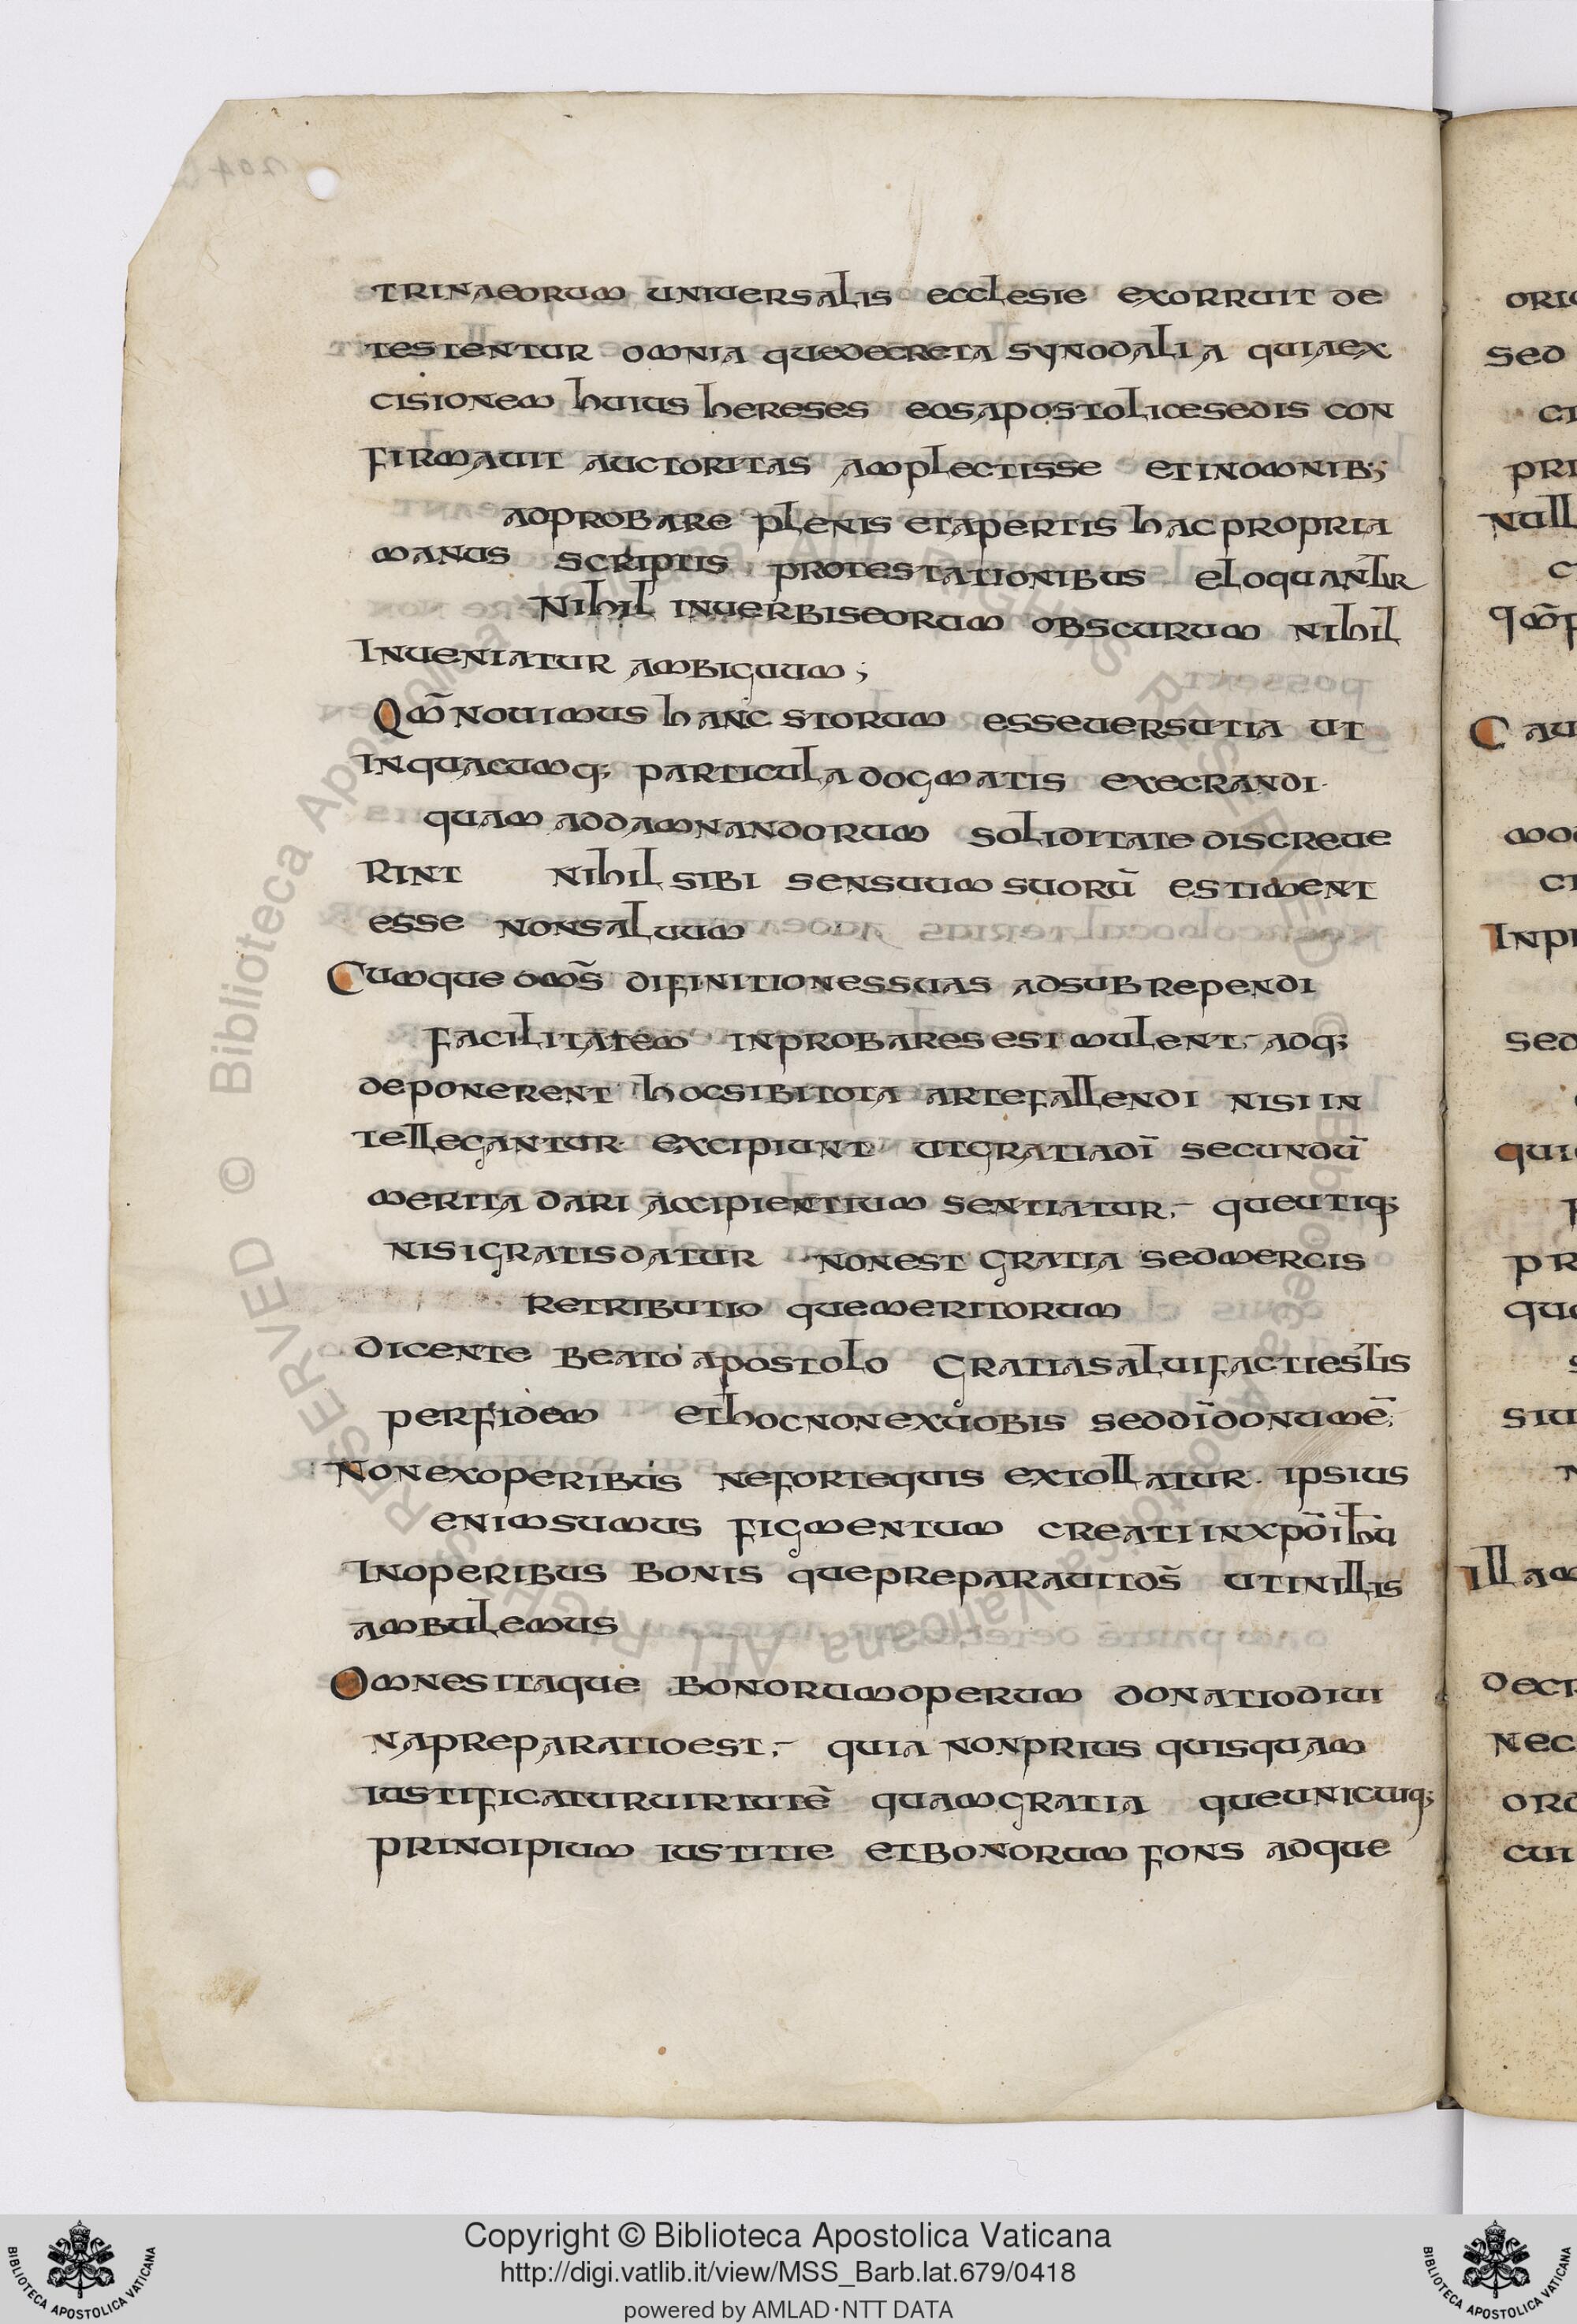 trinaeorum uniuersalis ecclesie exorruit de
testentur omnia quedecreta synodalia quiaex
cisionem huius hereses eosapostolicesedis con
firmauit auctoritas amplectisse etinomnib;
adprobare plenis etapertis hac propria
manus scriptis protestationibus eloquantur
Nihil inuerbiseorum obscurum nihil
Inueniatur ambiguum;
Qm̄ nouimus hanc storum esseuersutia ut
Inquacumq; particula dogmatis execrandi·
quam addamnandorum soliditate discreue
rint nihil sibi sensuum suorū estiment
esse nonsaluum
Cumque om̄s difinitionessuas adsubrependi
facilitatem inprobaresestmulent adq;
deponerent hocsibitota artefallendi nisi in
tellegantur excipiunt utgratiadī secundū
merita dari accipientium sentiatur, queutiq;
nisigratisdatur nonest gratia sedmercis
retributio quemeritorum
dicente beato apostolo gratiasaluifactiestis
perfidem ethocnonexuobis seddīdonumē;
Nonexoperibus nefortequis extollatur· ipsius
enimsumus figmentum creatiinxpōihu
Inoperibus bonis quepreparauitd̄s utinillis
ambulemus
Omnesitaque bonorumoperum donatiodiui
napreparatioest, quia nonprius quisquam
iustificaturuirtutē quamgratia queunicuiq;
principium iustitie etbonorum fons adque
oric
sed
ci
pri
null
c
qm̄p
Cau
mod
ci
Inpr
sed
qui
pr
que
siu
Illam
decr
nec
ord
cui
© Biblioteca Apostolica Vaticana ALL RIGHTS RESERVED
Copyright © Biblioteca Apostolica Vaticana
http://digi.vatlib.it/view/MSS_Barb.lat.679/0418
powered by AMLAD·NTT DATA
BIBLIOTECA APOSTOLICA VATICANA
BIBLIOTECA APOSTOLICA VATICANA